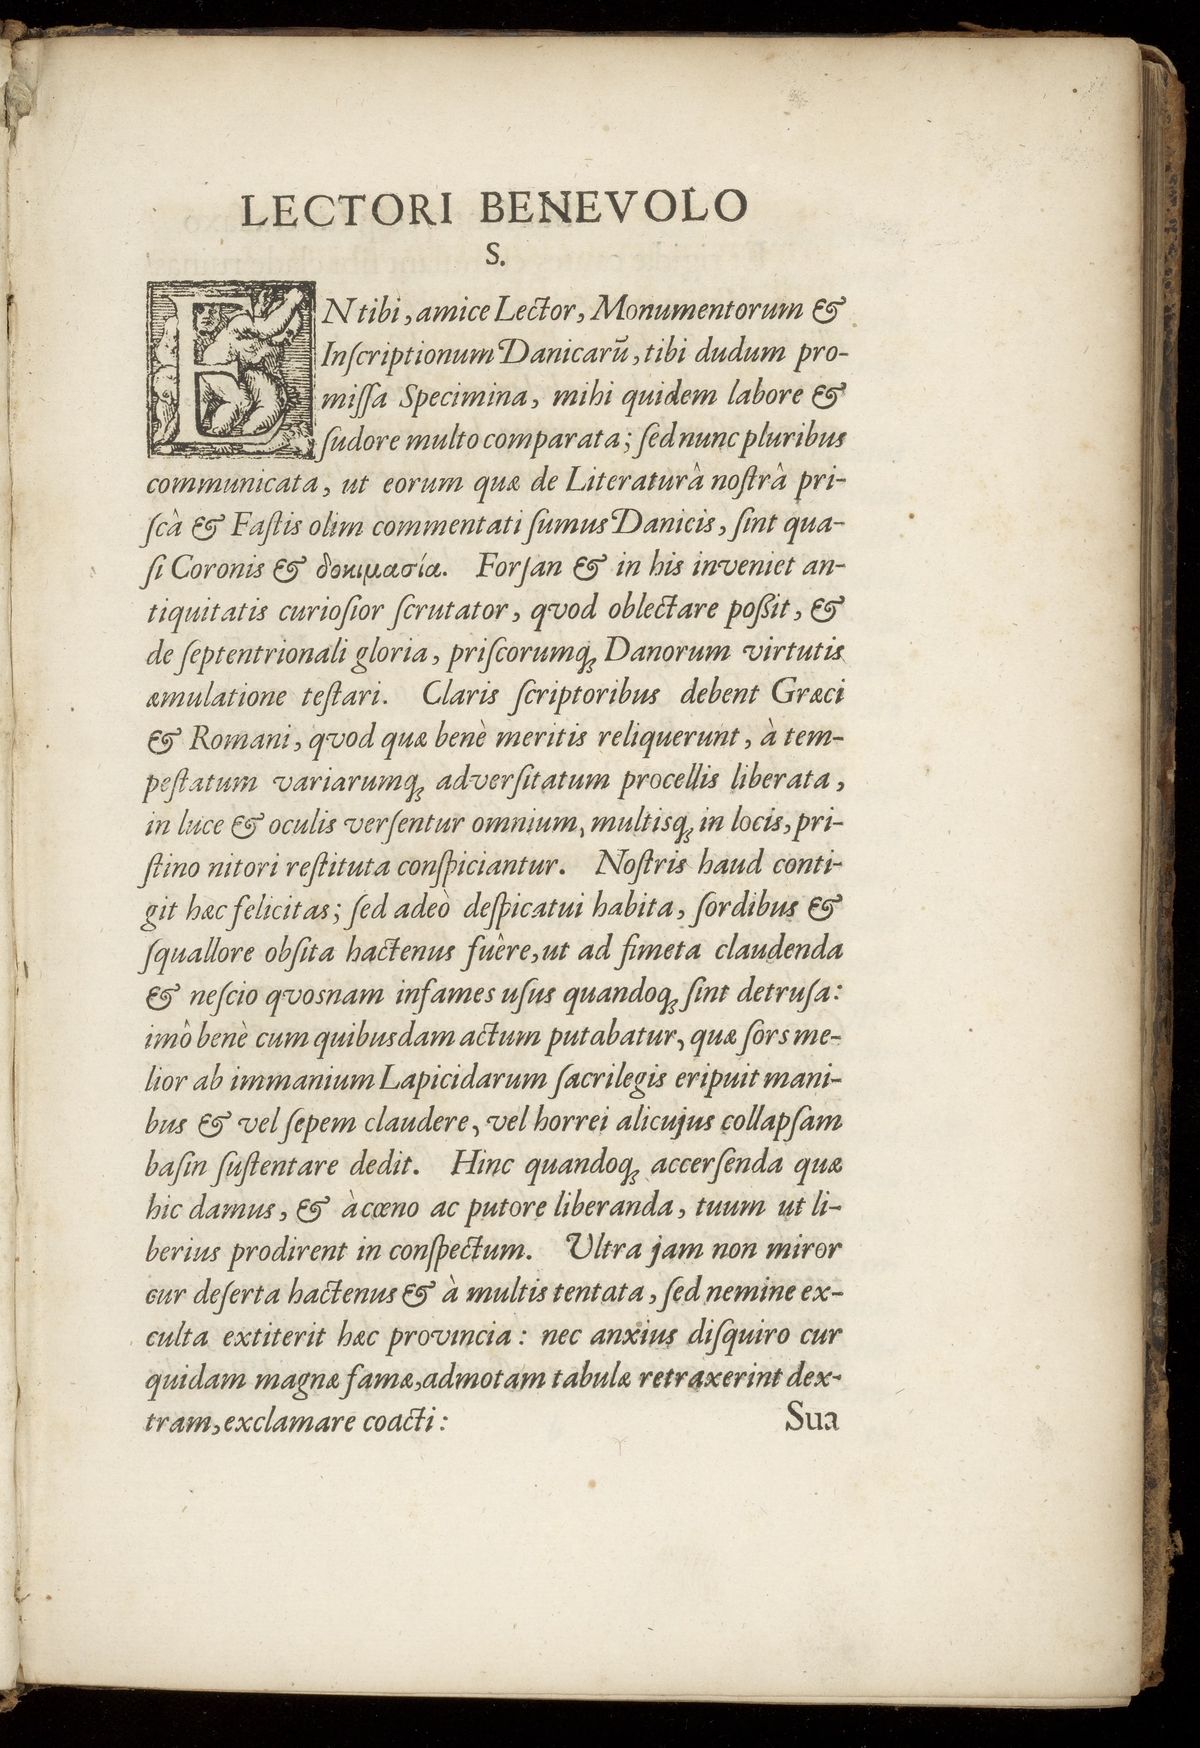 LECTORI BENEVOLO
S.
EN tibi, amice Lector, Monumentorum &
Inſcriptionum Danicarū, tibi dudum pro-
miſſa Specimina, mihi quidem labore &
ſudore multo comparata; ſed nunc pluribus
communicata, ut eorum quæ de Literaturâ noſtrâ pri-
ſcà & Faſtis olim commentati ſumus Danicis, ſint qua-
ſi Coronis & δοκιμασία. Forſan & in his inveniet an-
tiquitatis curioſior ſcrutator, qvod oblectare poßit, &
de ſeptentrionali gloria, priſcorumqꝫ Danorum virtutis
æmulatione teſtari. Claris ſcriptoribus debent Græci
& Romani, qvod quæ benè meritis reliquerunt, à tem-
peſtatum variarumqꝫ adverſitatum procellis liberata,
in luce & oculis verſentur omnium, multisqꝫ in locis, pri-
ſtino nitori reſtituta conſpiciantur. Noſtris haud conti-
git hæc felicitas; ſed adeò deſpicatui habita, ſordibus &
ſquallore obſita hactenus fuêre, ut ad fimeta claudenda
& neſcio qvosnam infames uſus quandoqꝫ ſint detruſa:
imô benè cum quibusdam actum putabatur, quæ ſors me-
lior ab immanium Lapicidarum ſacrilegis eripuit mani-
bus & vel ſepem claudere, vel horrei alicujus collapſam
baſin ſuſtentare dedit. Hinc quandoqꝫ accerſenda quæ
hic damus, & à cœno ac putore liberanda, tuum ut li-
berius prodirent in conſpectum. Ultra jam non miror
cur deſerta hactenus & à multis tentata, ſed nemine ex-
culta extiterit hæc provincia: nec anxius diſquiro cur
quidam magnæ famæ, admotam tabulæ retraxerint dex-
tram, exclamare coacti:
Sua